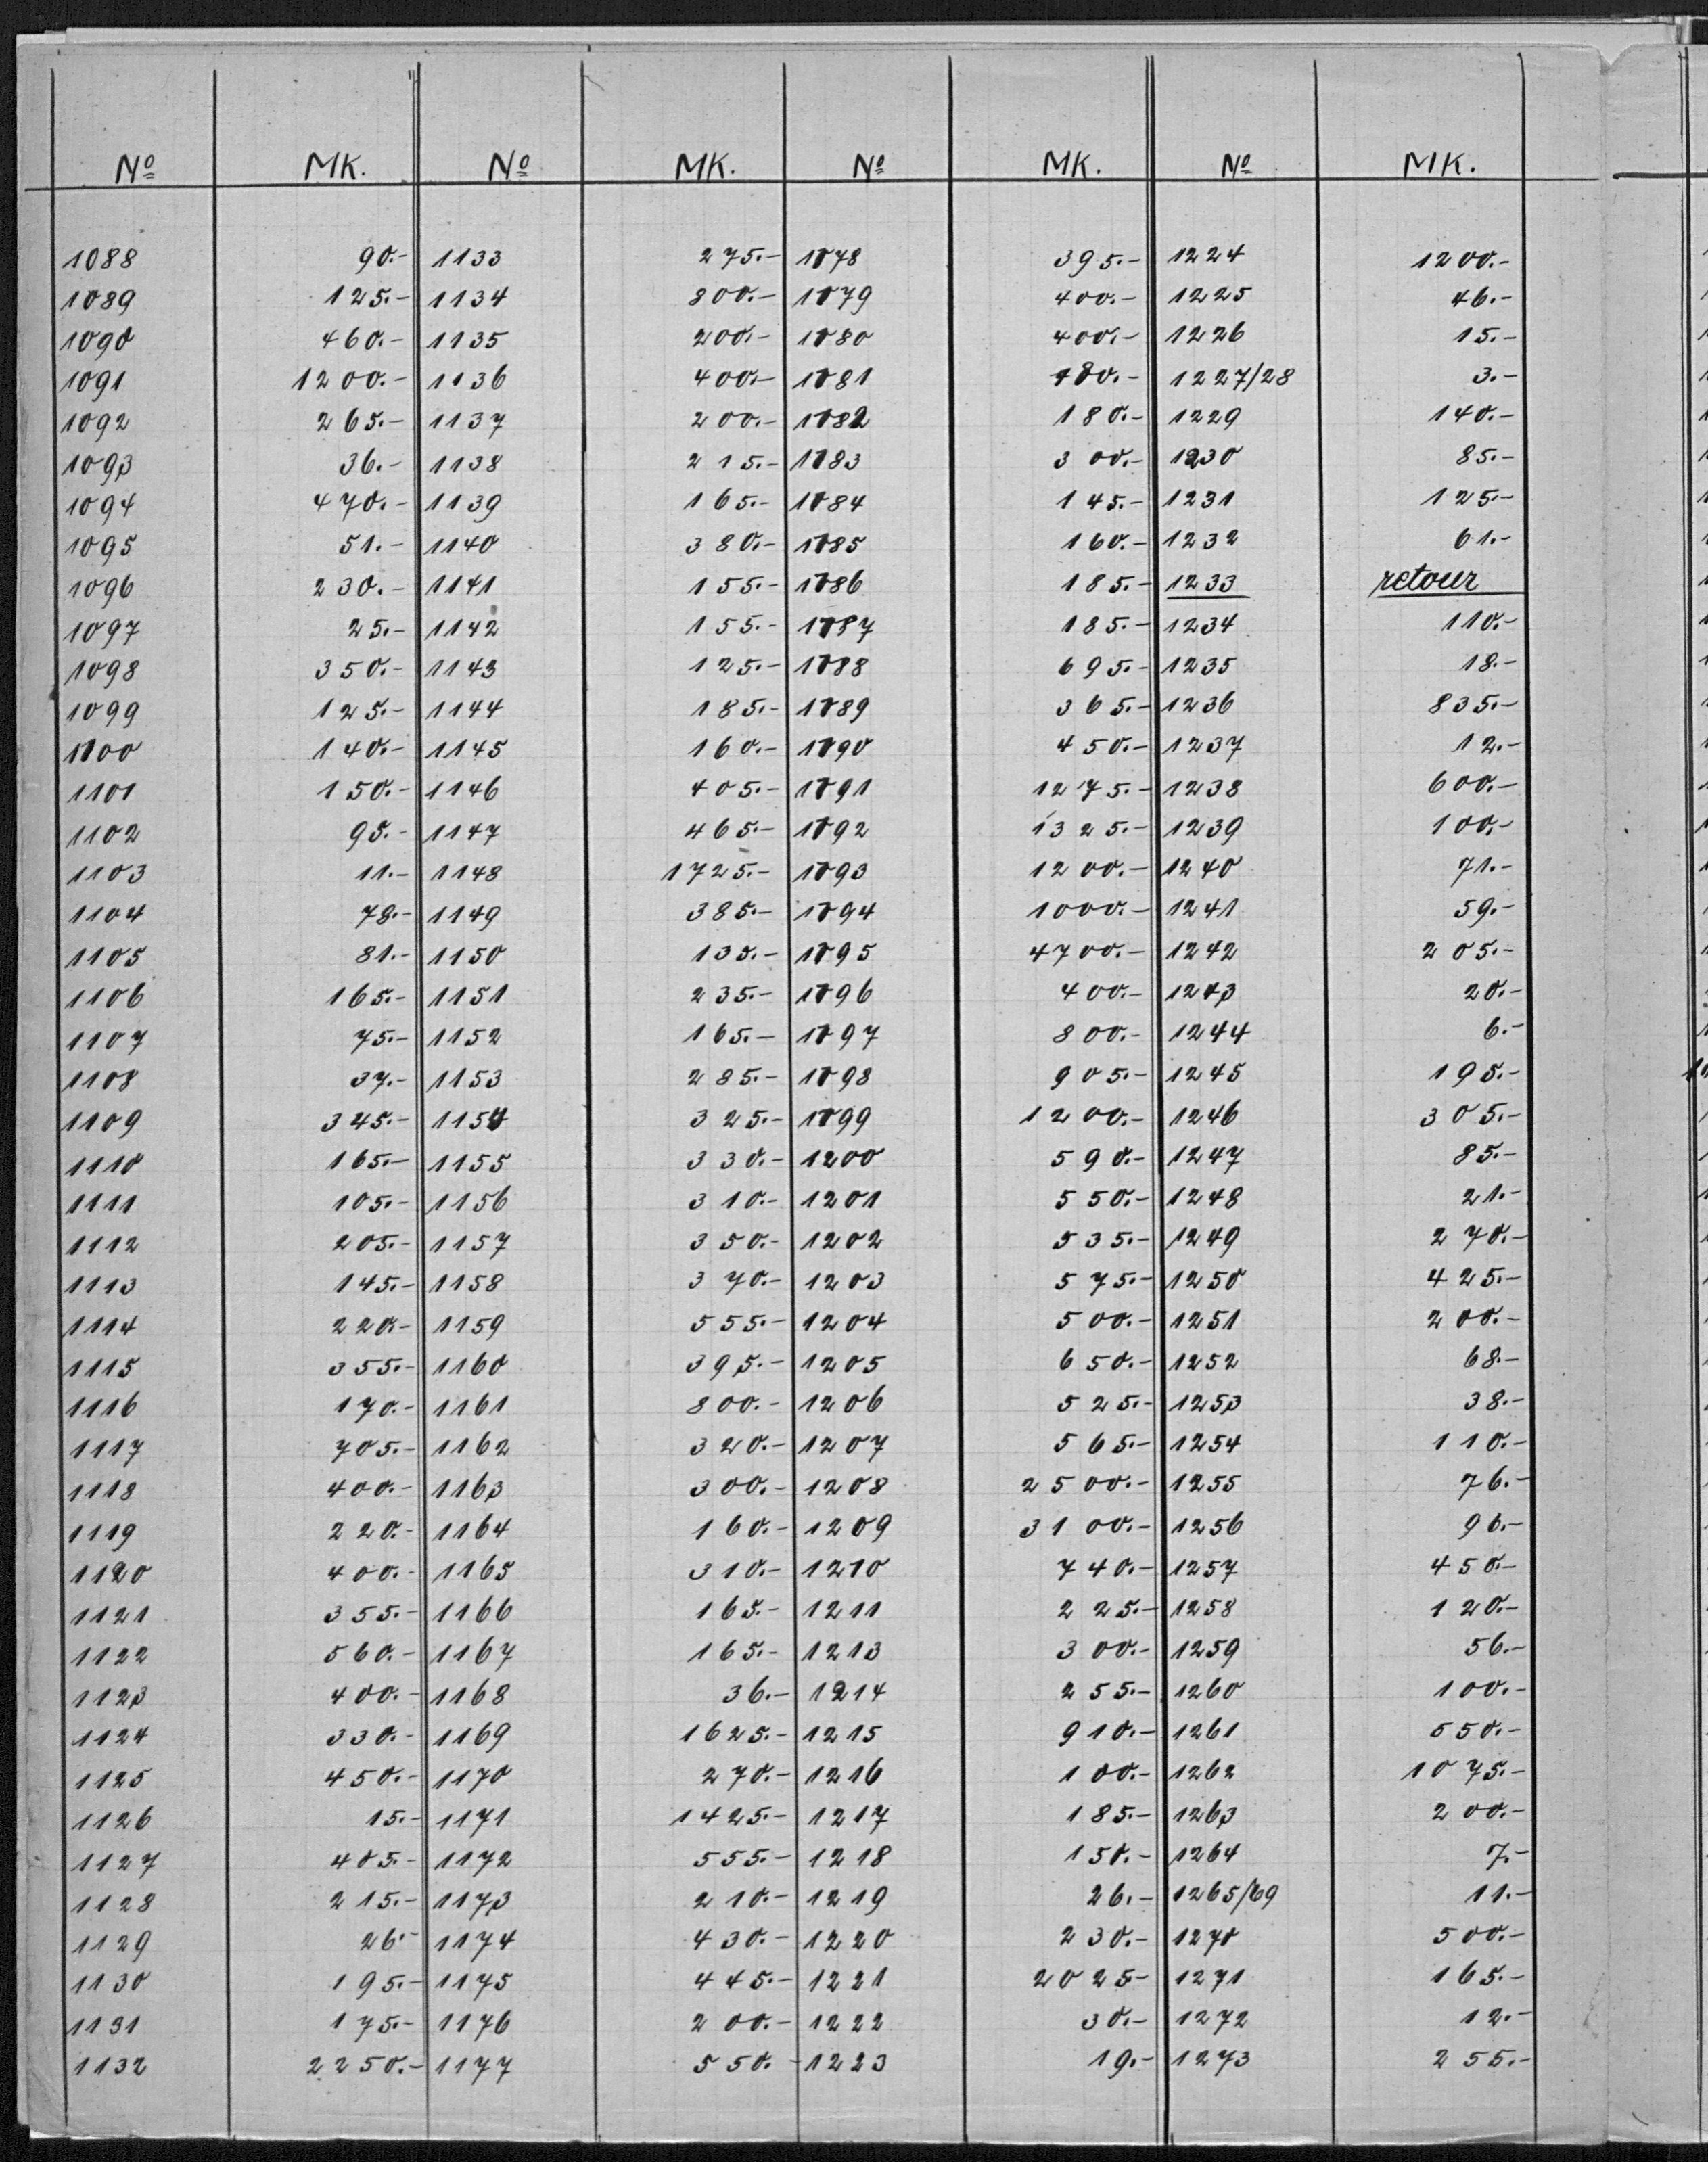 Nº MK. Nº MK. Nº MK. Nº MK.
1088 90.- 1133 275.- 1178 395.- 1224 1200.-
1089 125.- 1134 800.- 1179 400.- 1225 46.-
1090 460.- 1135 200.- 1180 400.- 1226 15.-
1091 1200.- 1136 400.- 1181 180.- 1227/28 3.-
1092 265.- 1137 200.- 1182 180.- 1229 140.-
1093 36.- 1138 215.- 1183 300.- 1230 85.-
1094 470.- 1139 165.- 1184 145.- 1231 125.-
1095 51.- 1140 380.- 1185 160.- 1232 61.-
1096 230.- 1141 155.- 1186 185.- 1233 retour
1097 25.- 1142 155.- 1187 185.- 1234 110.-
1098 350.- 1143 125.- 1188 695.- 1235 18.-
1099 125.- 1144 185.- 1189 365.- 1236 835.-
1100 140.- 1145 160.- 1190 450.- 1237 12.-
1101 150.- 1146 405.- 1191 1275.- 1238 600.-
1102 95.- 1147 465.- 1192 1325.- 1239 100.-
1103 11.- 1148 1725.- 1193 1200.- 1240 71.-
1104 78.- 1149 385.- 1194 1000.- 1241 59.-
1105 81.- 1150 135.- 1195 4700.- 1242 205.-
1106 165.- 1151 235.- 1196 400.- 1243 20.-
1107 75.- 1152 165.- 1197 800.- 1244 6.-
1108 37.- 1153 285.- 1198 905.- 1245 195.-
1109 345.- 1154 325.- 1199 1200.- 1246 305.-
1110 165.- 1155 330.- 1200 590.- 1247 85.-
1111 105.- 1156 310.- 1201 550.- 1248 21.-
1112 205.- 1157 350.- 1202 535.- 1249 270.-
1113 145.- 1158 370.- 1203 575.- 1250 425.-
1114 220.- 1159 555.- 1204 500.- 1251 200.-
1115 355.- 1160 395.- 1205 650.- 1252 68.-
1116 170.- 1161 800.- 1206 525.- 1253 38.-
1117 705.- 1162 320.- 1207 565.- 1254 110.-
1118 400.- 1163 300.- 1208 2500.- 1255 76.-
1119 220.- 1164 160.- 1209 3100.- 1256 96.-
1120 400.- 1165 310.- 1210 740.- 1257 450.-
1121 355.- 1166 165.- 1211 225.- 1258 120.-
1122 560.- 1167 165.- 1213 300.- 1259 56.-
1123 400.- 1168 36.- 1214 255.- 1260 100.-
1124 330.- 1169 1625.- 1215 910.- 1261 550.-
1125 450.- 1170 270.- 1216 100.- 1262 1075.-
1126 15.- 1171 1425.- 1217 185.- 1263 200.-
1127 405.- 1172 555.- 1218 150.- 1264 7.-
1128 215.- 1173 210.- 1219 26.- 1265/69 11.-
1129 26.- 1174 430.- 1220 230.- 1270 500.-
1130 195.- 1175 445.- 1221 2025.- 1271 165.-
1131 175.- 1176 200.- 1222 30.- 1272 12.-
1132 2250.- 1177 550.- 1223 19.- 1273 255.-